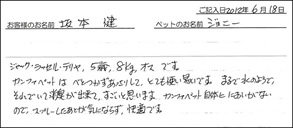 ご記入日2012年6月18日
お客様のお名前 坂本 健 ペットのお名前 ジョニー
ジャック・ラッセル・テリヤ、5才、8kg、オス です。
カンファペットは べとつかず あっさりして、とても使い易いです まるで水のようで、
それでいて消臭が出来て、すごいと思います カンファペット自体に においがない
ので、スプレーしたあとが気にならず、快適です